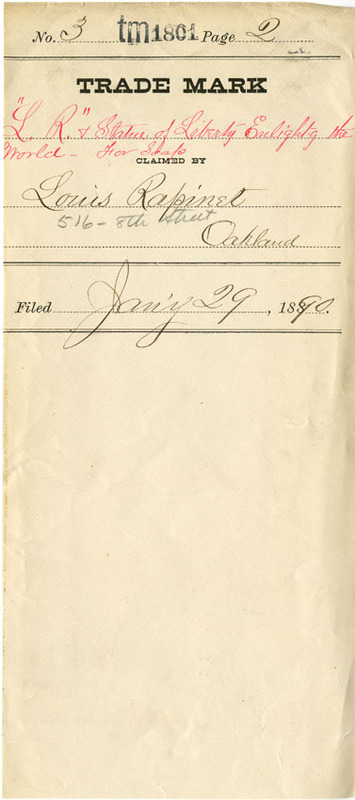 No. 3 tm1801 Page 2
TRADE MARK
"L. R." & Statue of Liberty Enlight'g the
World - For Soap
CLAIMED BY
Louis Rapinet
516 - 8th Street
Oakland
Filed Jan'y 29, 1890.